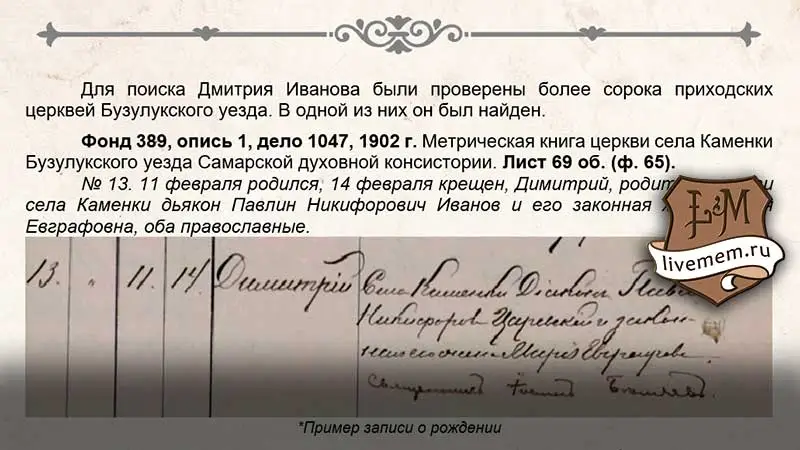 Для поиска Дмитрия Иванова были проверены более сорока приходских
церквей Бузулукского уезда. В одной из них он был найден.
Фонд 389, опись 1, дело 1047, 1902 г. Метрическая книга церкви села Каменки
Бузулукского уезда Самарской духовной консистории. Лист 69 об. (ф. 65).
№ 13. 11 февраля родился, 14 февраля крещен, Димитрий,
села Каменки дьякон Павлин Никифорович Иванов и его законная
Евграфовна, оба православные.
L&M
livemem.ru
13. " 11. 14. Димитрій Села Каменки Діаконъ
Никифоровъ и закон-
Марія Евграфова
Священникъ
*Пример записи о рождении